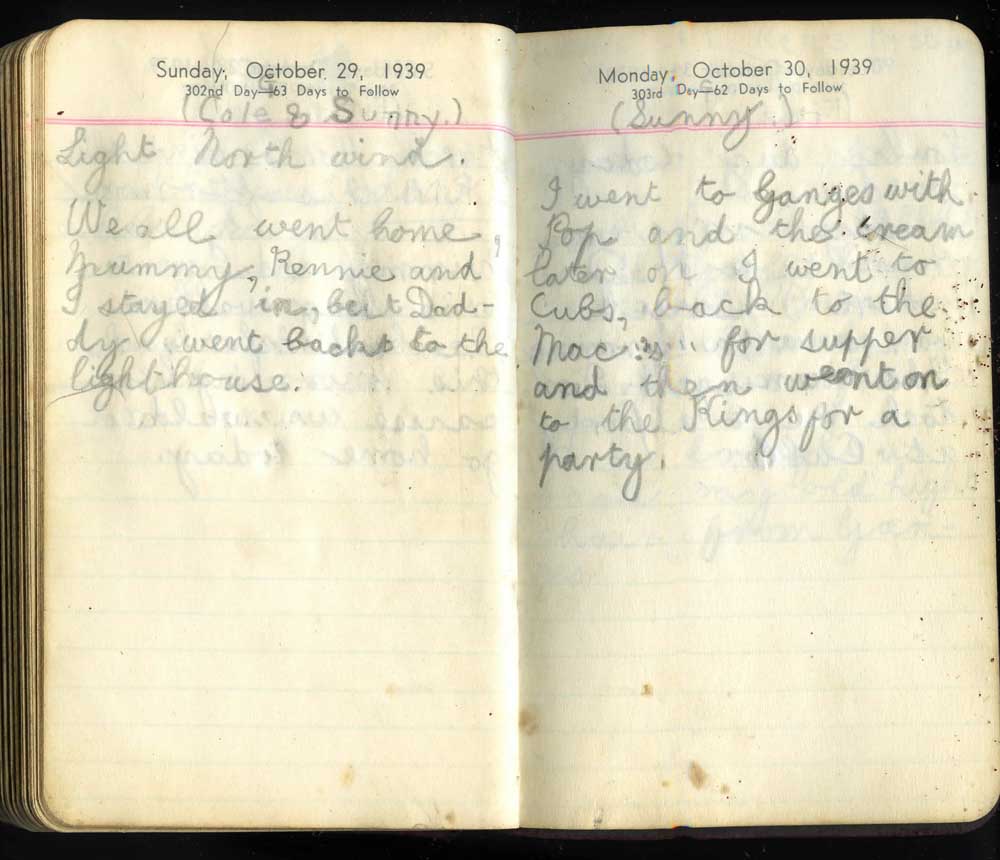 Sunday, October 29, 1939
302nd Day—63 Days to Follow
(Cole & Sunny.)
Light North wind.
We all went home,
Mummy, Rennie and
I stayed in, but Dad-
dy went backt to the
lighthouse.
Monday, October 30, 1939
303rd Day—62 Days to Follow
(Sunny)
I went to Ganges with
Pop and the cream
later on I went to
Cubs, back to the
Mac's for supper
and then went on
to the Kings for a
party.